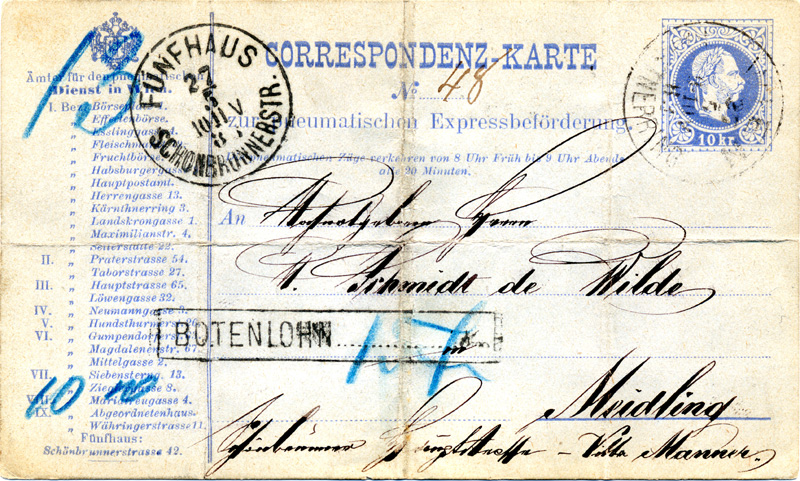 CORRESPONDENZ-KARTE
No. 48
zur pneumatischen Expressbeförderung.
Die pneumatischen Züge verkehren von 8 Uhr Früh bis 9 Uhr Abends
alle 20 Minuten.
10 kr.
FÜNFHAUS
SCHÖNBRUNNERSTR.
Ämter für den pneumatischen
Dienst in Wien.
I. Bez. Börseplatz
" Effectenbörse.
" Esslingasse 4.
" Fleischmarkt
" Fruchtbörse
" Habsburgergasse
" Hauptpostamt.
" Herrengasse 13.
" Kärnthnerring 3.
" Landskrongasse 1.
" Maximilianstr. 4.
" Seilerstätte 22.
II. " Praterstrasse 54.
" Taborstrasse 27.
III. " Hauptstrasse 65.
" Löwengasse 32.
IV. " Neumanngasse 3.
V. " Hundsthurmer
VI. " Gumpendorfer
" Magdalenenstr. 67.
" Mittelgasse 2.
VII. " Siebensterng. 13.
" Zieglergasse 8.
VIII. " Mariatreugasse 4.
IX. " Abgeordnetenhaus.
" Währingerstrasse 11.
Fünfhaus:
Schönbrunnerstrasse 42.
An Hochwolgeboren Herrn
Schmidt de Wilde
BOTENLOHN
10 10
Meidling
Schönbrunner Hauptstrasse – Villa Manner.